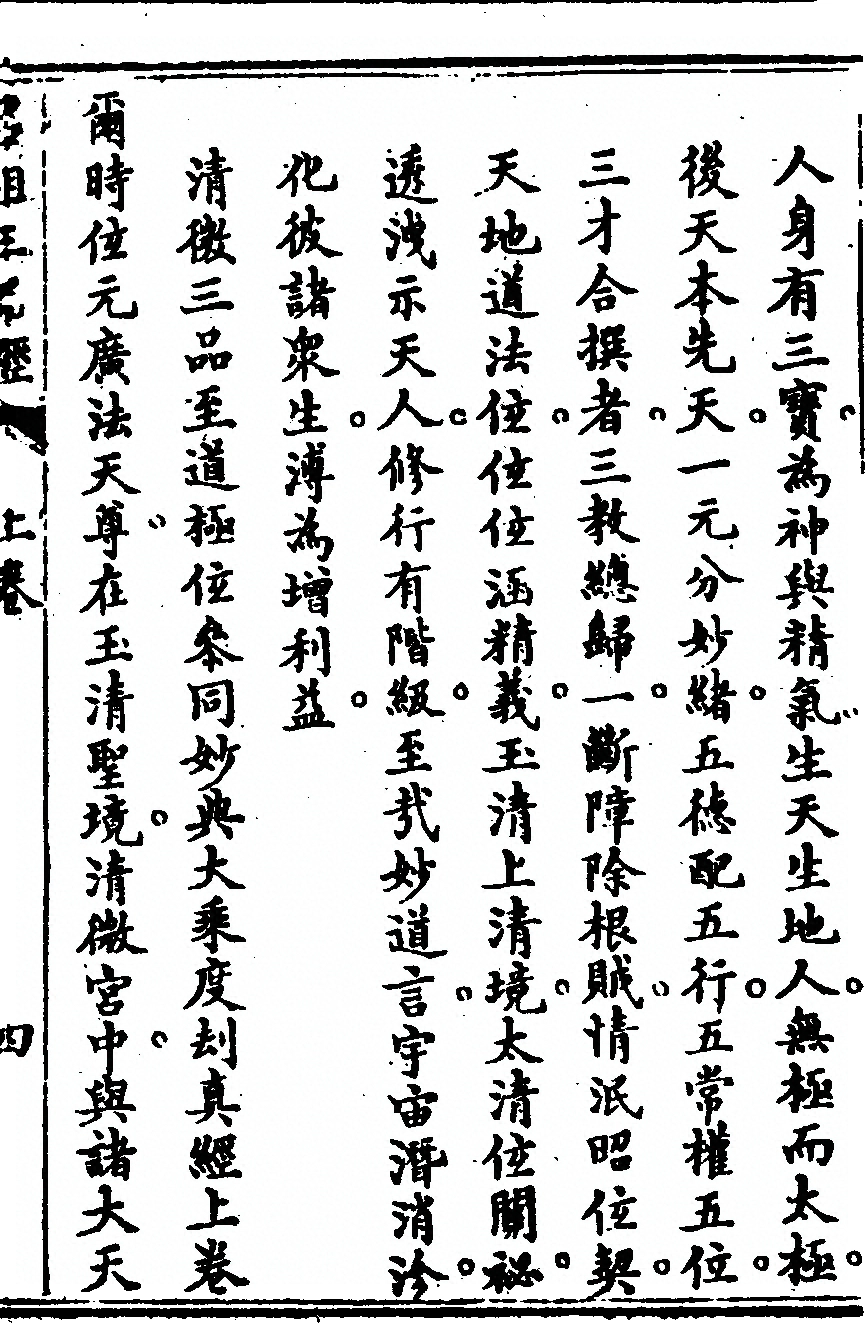 人身有三寶。為神與精氣。生天生地人。無極而太極。
後天本先天。一元分妙緒。五德配五行。五常權五位。
三才合撰者。三教總歸一。斷障除根賊。情泯昭位契。
天地道法位。位位涵精義。玉清上清境。太清位關祕。
透洩示天人。修行有階級。至哉妙道言。宇宙潛消沴。
化彼諸衆生。溥為增利益。
清微三品至道極位叅同妙典大乘度刼真經上卷
爾時位元廣法天尊。在玉清聖境。清微宮中。與諸大天
三品經 上卷 四